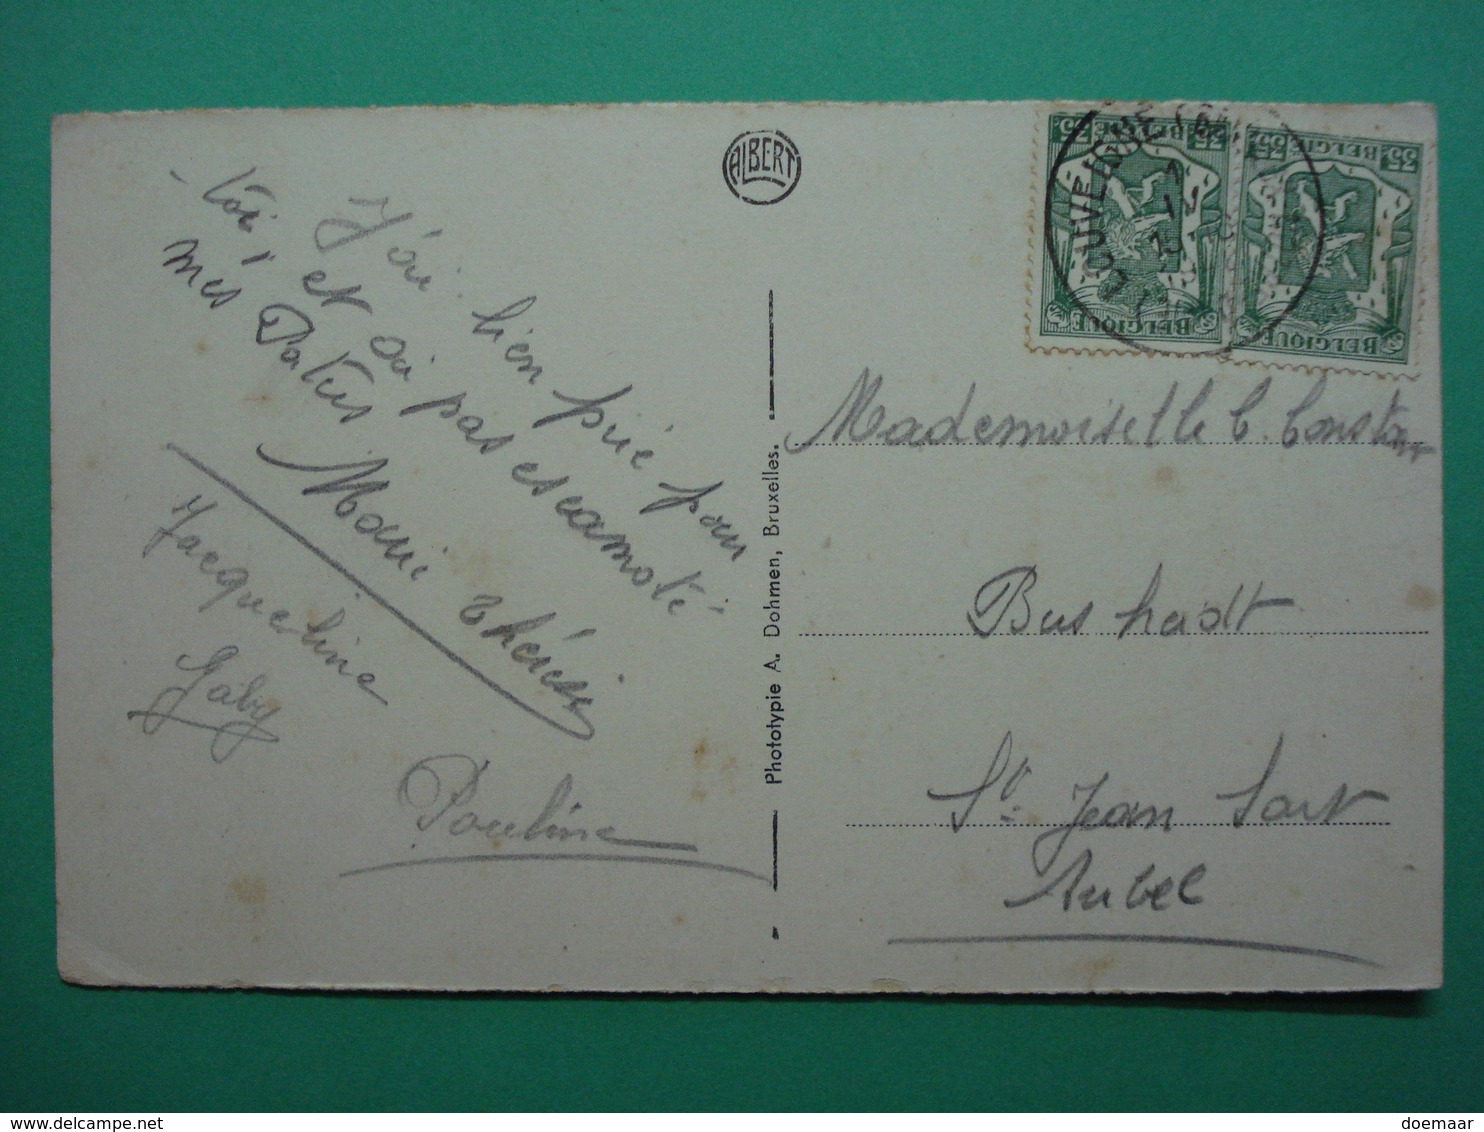 J'ai bien prié pour
toi, et ai pas escamoté
mes Patus
Marie Thérèse
Jacqueline
Gaby
Pauline
ALBERT
Phototypie A. Dohmen, Bruxelles.
35 BELGIE 35
BELGIQUE BELGIQUE
35 BELGIE 35
BELGIQUE BELGIQUE
LOUVEIGNÉ
Mademoiselle C. Constant
Bushadt
St Jean Sart
Aubel
delcampe.net
doemaar